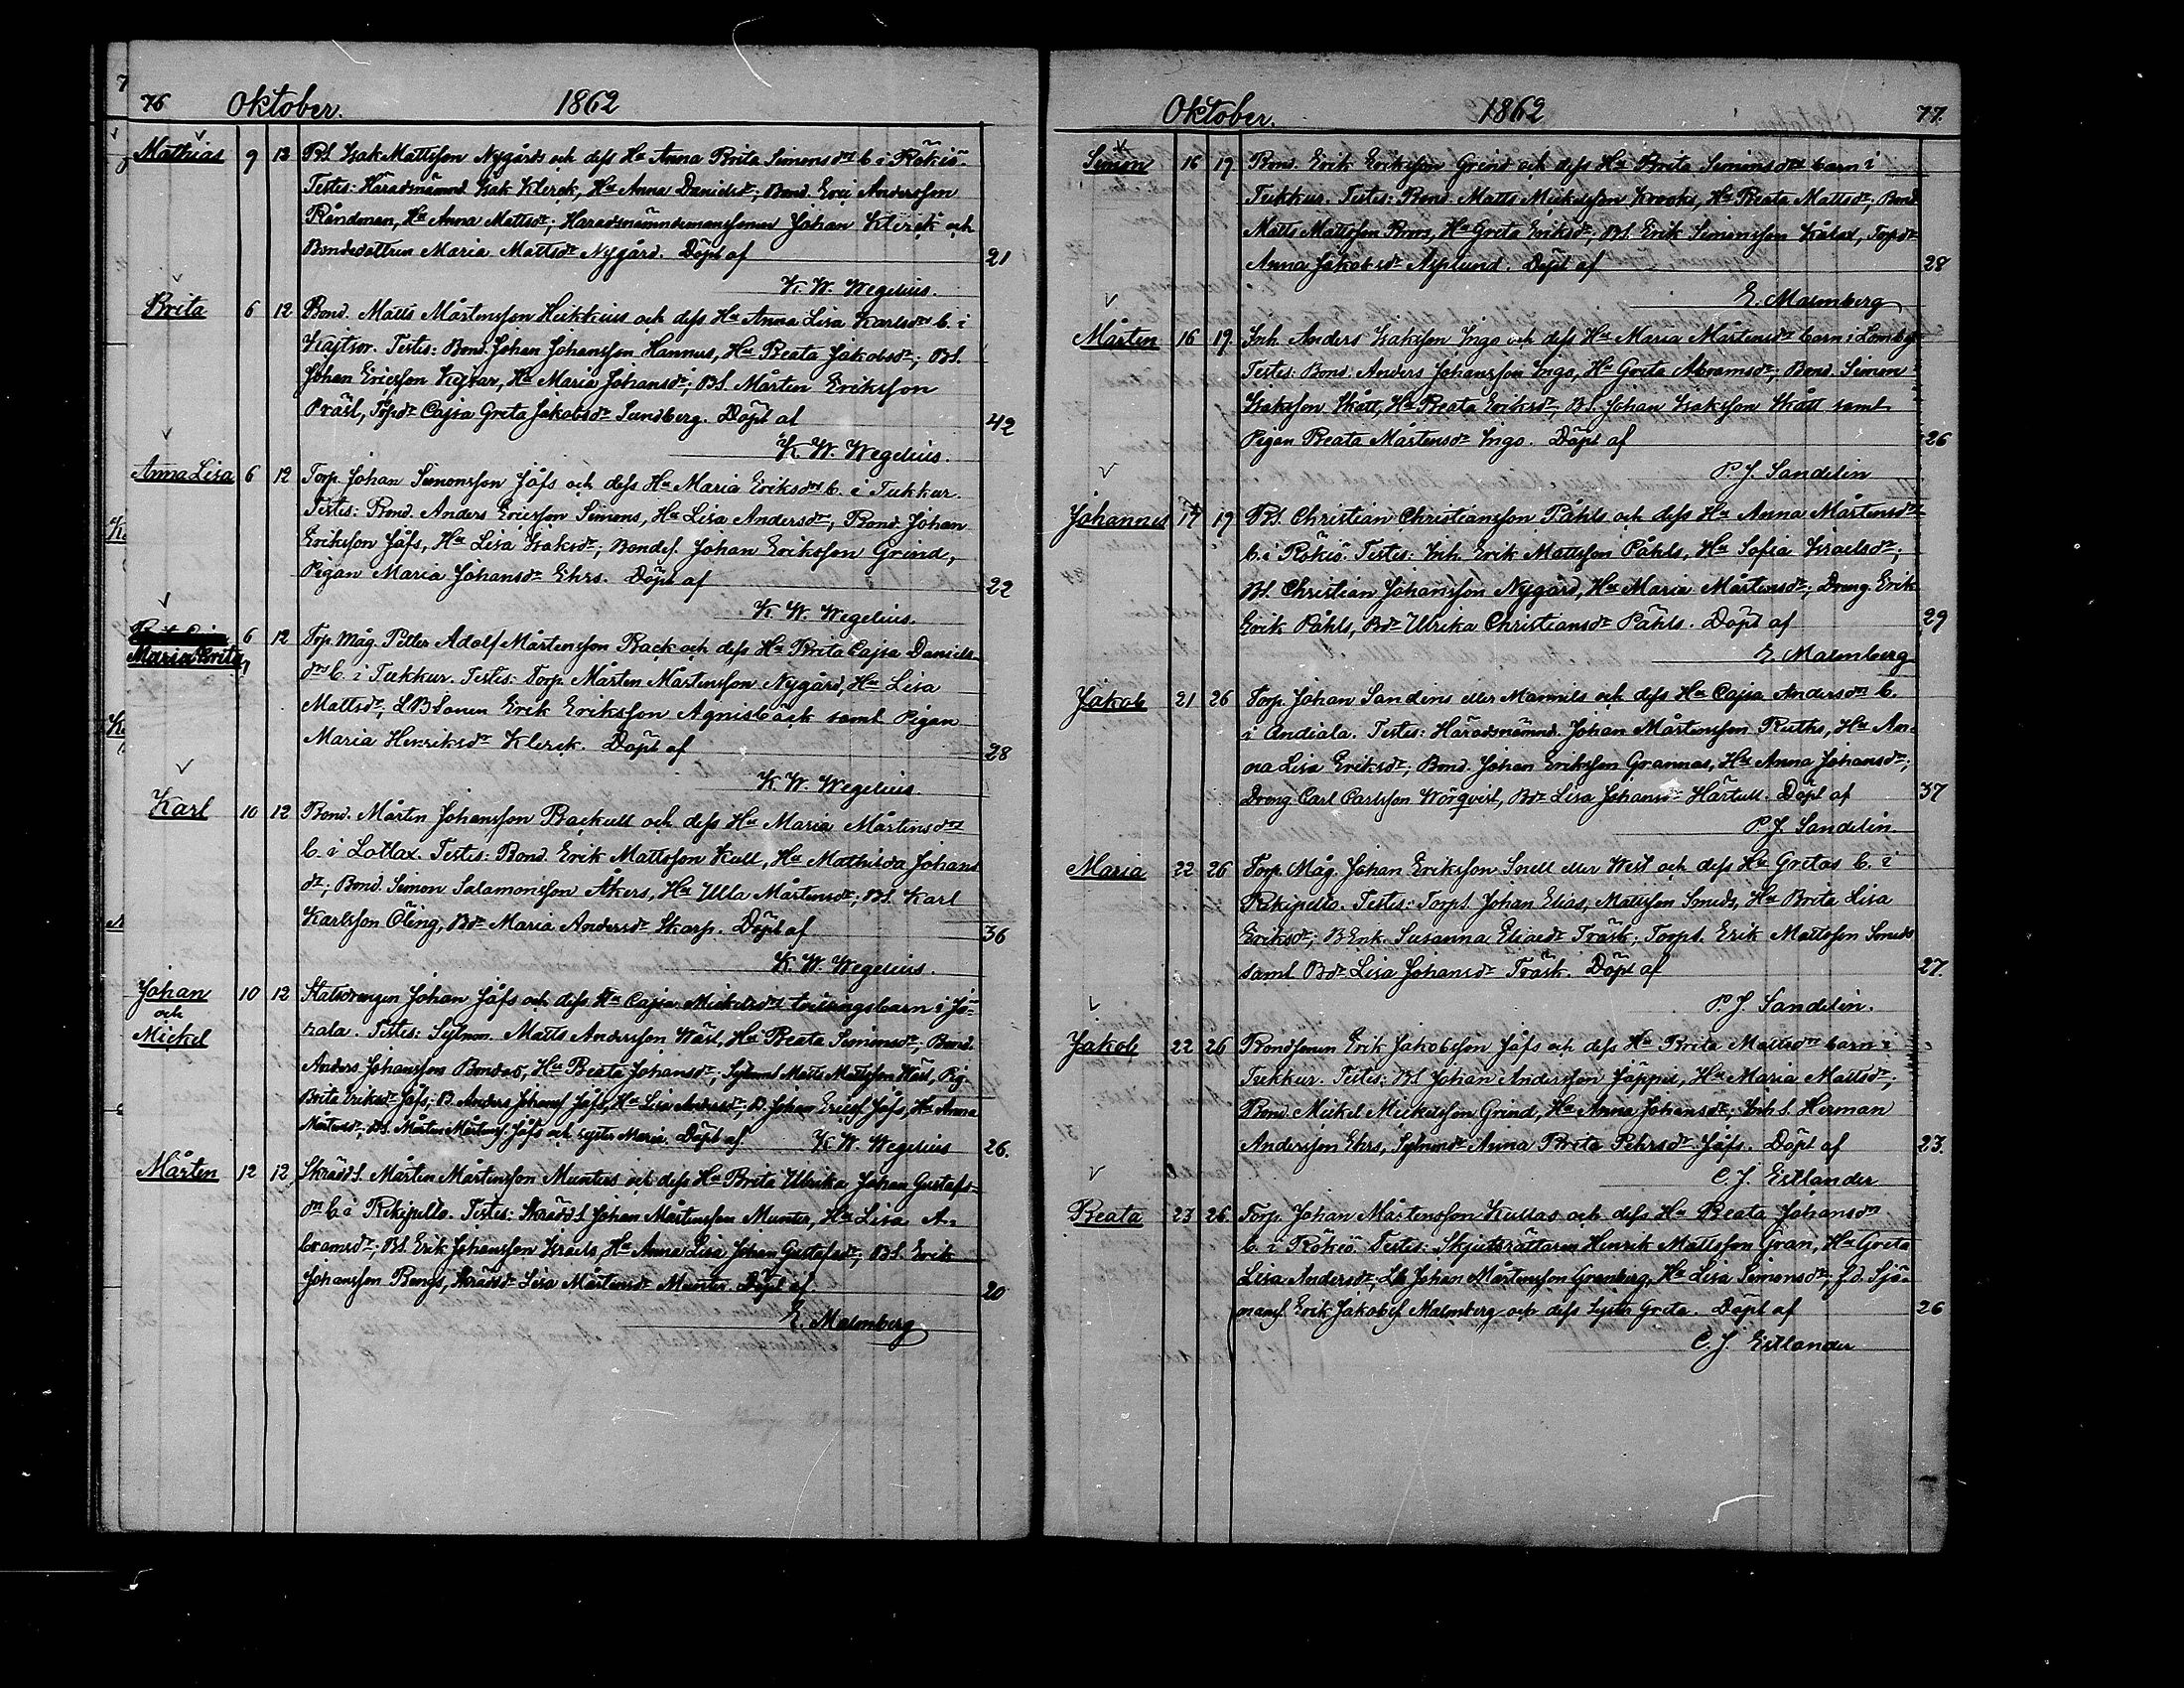 76 Oktober. 1862
Mathias 9 13 BS. Isak Mattsson Nygårds och dess Hu Anna Brita Simonsdrs b. i Rökiö.
Testes: Häradsnämnd. Isak Klerck, Hu Anna Danielsdr; Bond. Erei Andersson
Råndman, Hu Anna Mattsdr; Häradsnämndemanssonen Johan Klerck och
Bondedottren Maria Mattsdr Nygård. Döpt af 21
K. W. Wegelius.
Brita 6 12 Bond. Matts Mårtensson Heikkius och dess Hu Anna Lisa Karlsdrs b. i
Kaitsor. Testes: Bond. Johan Johansson Hannus, Hu Beata Jakobsdr; BS.
Johan Ericsson Kytrar, Hu Maria Johansdr; BS. Mårten Eriksson
Präst, Torpdr Cajsa Greta Jakobsdr Sundberg. Döpt af 42
K. W. Wegelius.
Anna Lisa 6 12 Torp. Johan Simonsson Jåfs och dess Hu Maria Eriksdrs b. i Tukkur.
Testes: Bond. Anders Ericsson Simons, Hu Lisa Andersdr; Bond. Johan
Eriksson Jåfs, Hu Lisa Isaksdr; Bondes. Johan Eriksson Grind,
Pigan Maria Johansdr Ehrs. Döpt af 22
K. W. Wegelius.
Maria Brita 6 12 Torp. Måg. Petter Adolf Mårtensson Back och dess Hu Brita Cajsa Daniels-
drs b. i Tukkur. Testes: Torp. Mårten Mårtensson Nygård, Hu Lisa
Mattsdr; LBSonen Erik Eriksson Agnisbäck samt Pigan
Maria Henriksdr Klerck. Döpt af 28
K. W. Wegelius.
Karl 10 12 Bond. Mårten Johansson Backull och dess Hu Maria Mårtensdrs
b. i Lotlax. Testes: Bond. Erik Mattsson Kull, Hu Mathilda Johans
dr; Bond. Simon Salamonsson Åkers, Hu Ulla Mårtensdr; BS. Karl
Karlsson Öling, Bdr Maria Andersdr Skarp. Döpt af 36
K. W. Wegelius.
Johan 10 12 Statsdrengen Johan Jåfs och dess Hu Cajsa Mickelsdrs tvillingsbarn i Jö-
och
Mickel rala. Testes: Sytnm. Matts Andersson Wäst, Hu Beata Simonsdr; Bond.
Anders Johansson Bondas, Hu Beata Johansdr; Sytnms. Matts Mattsson Wäst, Pig.
Brita Eriksdr Jåfs; B. Anders Johanss. Jåfs, Hu Lisa Andersdr; B. Johan Ericss. Jåfs, Hu Anna
Mårtensdr; BS. Mårten Mårtenss. Jåfs och syster Maria. Döpt af K. W. Wegelius 26.
Mårten 12 12 SkräddS. Mårten Mårtensson Munters och dess Hu Brita Ulrika Johan Gustafs-
drs b. i Rekipeldo. Testes: SkräddS. Johan Mårtensson Munter, Hu Lisa A-
bramsdr; BS. Erik Johansson Israels, Hu Anna Lisa Johan Gustafsdr; BS. Erik
Johansson Bengs, Skräddr Lisa Mårtensdr Munter. Döpt af 20
E. Malmberg
Oktober. 1862 77.
Simon 16 19 Bond. Erik Eriksson Grind och dess Hu Brita Simonsdrs barn i
Tukkur. Testes: Bond. Matts Mickelsson Krooks, Hu Beata Mattsdr; Bond
Matts Mattsson Broos, Hu Greta Eriksdr; BS. Erik Simonsson Kålax, Torpdr
Anna Jakobsdr Asplund. Döpt af 28
E. Malmberg
Mårten 16 19 Inh. Anders Isaksson Ingo och dess Hu Maria Mårtensdrs barn i Lomby.
Testes: Bond. Anders Johansson Ingo, Hu Greta Abramsdr; Bond. Simon
Isaksson Skått, Hu Beata Eriksdr; BS. Johan Isaksson Skått samt
Pigan Beata Mårtensdr Ingo. Döpt af 26
P. J. Sandelin
Johannes 17 19 BS. Christian Christiansson Påhls och dess Hu Anna Mårtensdrs
b. i Rökiö. Testes: Inh. Erik Mattsson Påhls, Hu Sofia Israelsdr;
BS. Christian Johansson Nygård, Hu Maria Mårtensdr; Dreng. Erik
Erik Påhls, Bdr Ulrika Christiansdr Påhls. Döpt af 29
E. Malmberg
Jakob 21 26 Torp. Johan Sandens eller Mannils och dess Hu Cajsa Andersdrs b.
i Andiala. Testes: Häradsnämnd. Johan Mårtensson Ruths, Hu An-
na Lisa Eriksdr; Bond. Johan Eriksson Grannas, Hu Anna Johansdr;
Dreng Carl Carlsson Wörqvist, Bdr Lisa Johansdr Hartull. Döpt af 37
P. J. Sandelin.
Maria 22 26 Torp. Måg. Johan Eriksson Snell eller West och dess Hu Gretas b. i
Rekipeldo. Testes: TorpS. Johan Elias Mattsson Smeds, Hu Brita Lisa
Eriksdr; BEnk. Susanna Eliaedr Träsk; TorpS. Erik Mattsson Smeds
samt Bdr Lisa Johansdr Träsk. Döpt af 27.
P. J. Sandelin.
Jakob 22 26 Bondsonen Erik Jakobsson Jåfs och dess Hu Brita Mattsdrs barn i
Tukkur. Testes: BS. Johan Andersson Jåppes, Hu Maria Mattsdr;
Bond. Mickel Mickelsson Grind, Hu Anna Johansdr; InhS. Herman
Andersson Ehrs, Sytnmdr Anna Brita Pehrsdr Jåfs. Döpt af 23.
C. J. Estlander
Beata 23 26 Torp. Johan Mårtensson Kullas och dess Hu Beata Johansdrs
b. i Rökiö. Testes: Skjutsrättaren Henrik Mattsson Gran, Hu Greta
Lisa Andersdr; Lb. Johan Mårtensson Grenberg, Hu Lisa Simonsdr; f.d. Sjö-
manen Erik Jakobss. Malmberg och dess syster Greta. Döpt af 26
C. J. Estlander